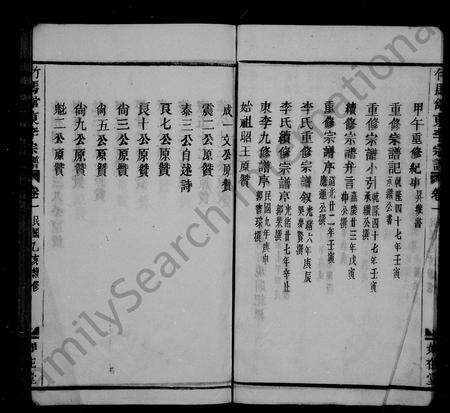 甲午重修紀事
重修宗譜記 乾隆四十七年壬寅
重修宗譜小引 乾隆四十七年壬寅
續修宗譜弁言 嘉慶廿三年戊寅
重修宗譜序
李氏重修宗譜敘 光緒六年庚辰
李氏續修宗譜序 光緒廿七年辛丑
東李九修譜序 民國九年庚申
始祖昭王原贊
成一文公原贊
震二公原贊
泰三公自述詩
艮七公原贊
艮十公原贊
尚三公原贊
尚五公原贊
尚九公原贊
魁二公原贊
竹馬館東李宗譜 卷一 民國乙亥續修
FamilySearch International